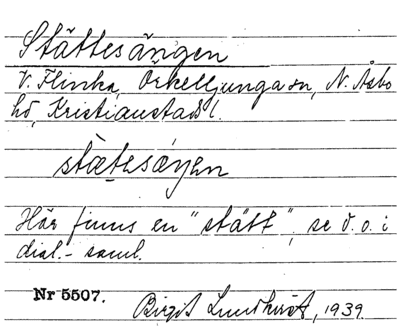 Stättesängen
V. Flinka, Örkelljunga sn, N. Åsbo
hd, Kristianstads l.
stætesæŋen
Här finns en "stätt", se d. o. i
dial.- saml.
Nr 5507. Birgit Lundkvist, 1939